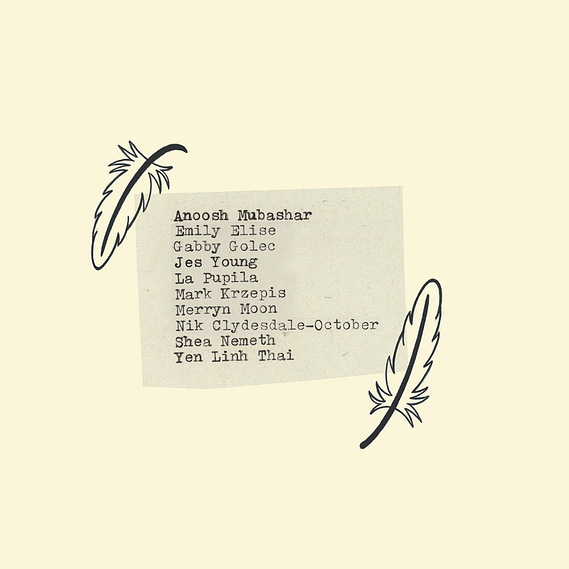 Anoosh Mubashar
Emily Elise
Gabby Golec
Jes Young
La Pupila
Mark Krzepis
Merryn Moon
Nik Clydesdale-October
Shea Nemeth
Yen Linh Thai